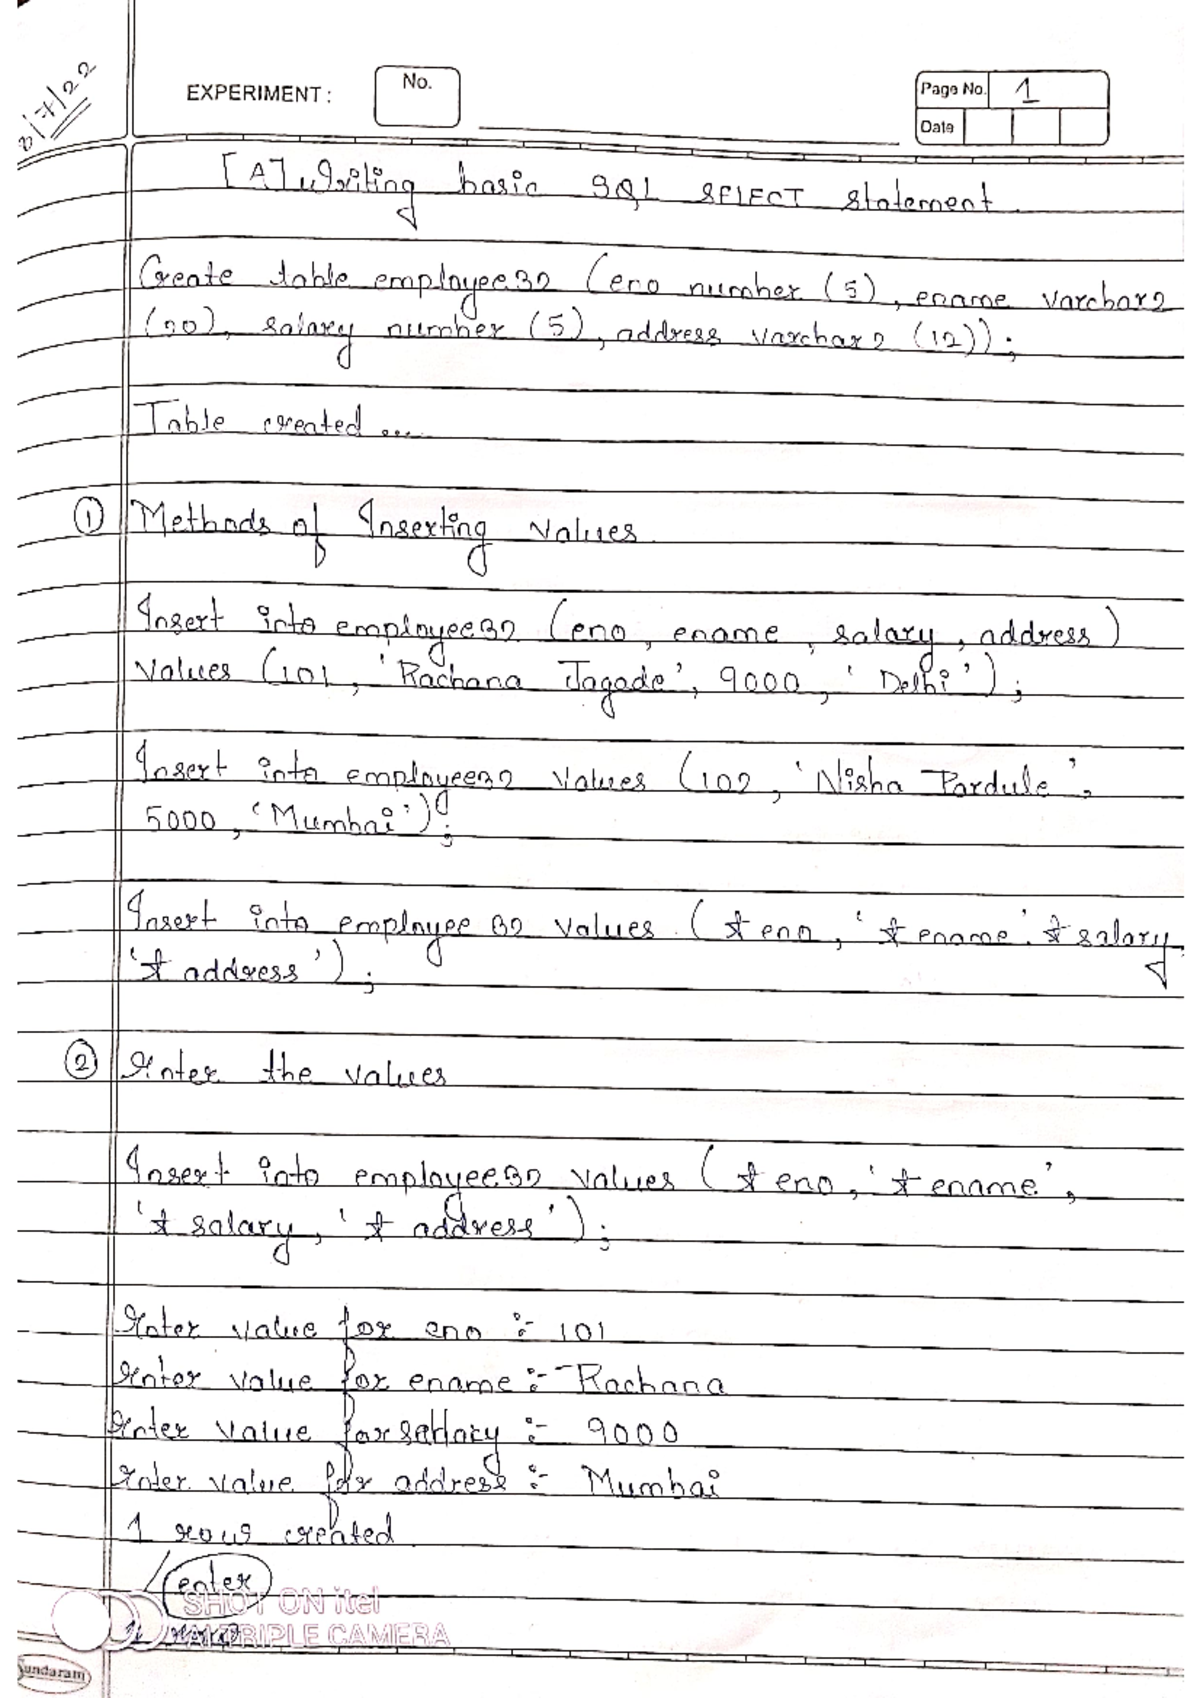 EXPERIMENT :
No.
Page No. 1
Date
/7/22
[A] Writing basic SQL SELECT statement.
Create table employee32 (eno number (5), ename varchar2
(20), salary number (5), address varchar2 (12));
Table created ...
① Methods of Inserting values.
Insert into employee32 (eno, ename, salary, address)
values (101, 'Rachana Jagade', 9000, 'Delhi');
Insert into employee32 values (102, 'Nisha Pardule',
5000, 'Mumbai');
Insert into employee 32 values (& eno, '& ename'. & salary,
'& address');
② Enter the values
Insert into employee32 values (& eno, '& ename',
'& salary, '& address');
Enter value for eno :- 101
Enter value for ename :- Rachana
Enter value for salary :- 9000
Enter value for address :- Mumbai
1 row created.
/ enter
SHOT ON itel
TRIPLE CAMERA
Sundaram